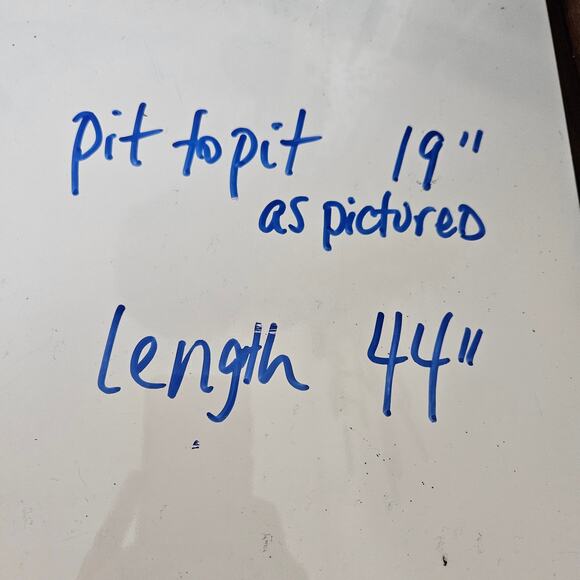 pit to pit 19"
as pictured
length 44"